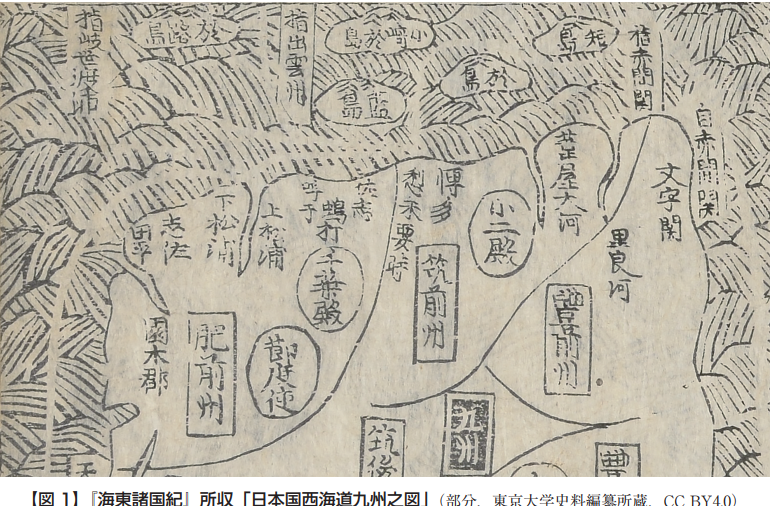 自赤間関
指赤間関
於島
小崎於島
藍島
指出雲州
於路島
文字関
芦屋大河
小二殿
豊前州
博多
愁未要時
筑前州
佐志
鴨打
呼子
千葉殿
上松浦
下松浦
志佐
田平
節度使
肥前州
園木郡
豊
九州
筑後
【図 1】『海東諸国紀』所収「日本国西海道九州之図」(部分、東京大学史料編纂所蔵、CC BY4.0)